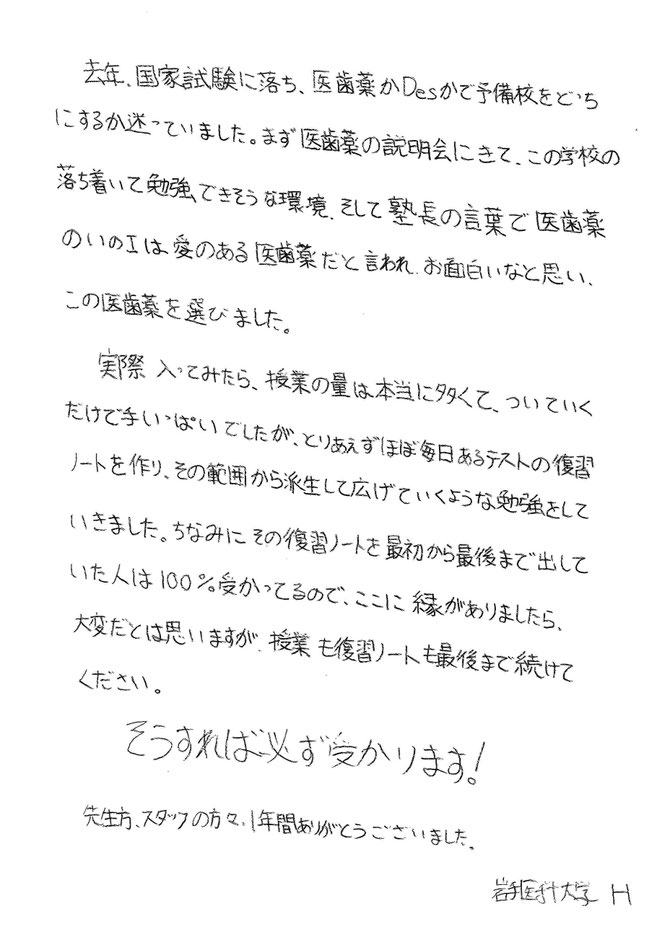 去年、国家試験に落ち、医歯薬かDesかで予備校をどっち
にするか迷っていました。まず医歯薬の説明会にきて、この学校の
落ち着いて勉強できそうな環境、そして塾長の言葉で医歯薬
のいのIは愛のある医歯薬だと言われ、お面白いなと思い、
この医歯薬を選びました。
実際入ってみたら、授業の量は本当に多くて、ついていく
だけで手いっぱいでしたが、とりあえずほぼ毎日あるテストの復習
ノートを作り、その範囲から派生して広げていくような勉強をして
いきました。ちなみにその復習ノートを最初から最後まで出して
いた人は100%受かってるので、ここに縁がありましたら、
大変だとは思いますが、授業も復習ノートも最後まで続けて
ください。
そうすれば必ず受かります!
先生方、スタッフの方々、1年間ありがとうございました。
岩手医科大学 H